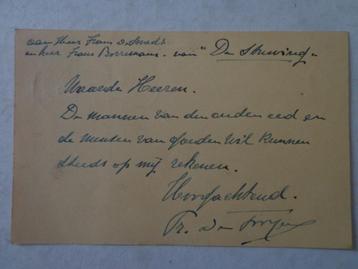 aan Heer Frans De Smedt
en heer Frans Borremans. van "De Stuwing".
Waarde Heeren.
De mannen van den ouden eed en
de menschen van goeden wil kunnen
steeds op mij rekenen.
Hoogachtend.
Fr. De